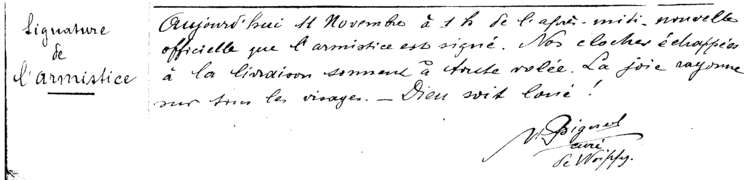 Signature
de
l'Armistice
Aujourd'hui 11 Novembre à 1 h de l'après-midi - nouvelle
officielle que l'armistice est signé. Nos cloches échappées
à la livraison sonnent à toute volée. La joie rayonne
sur tous les visages. — Dieu soit loué !
curé
de Woippy.